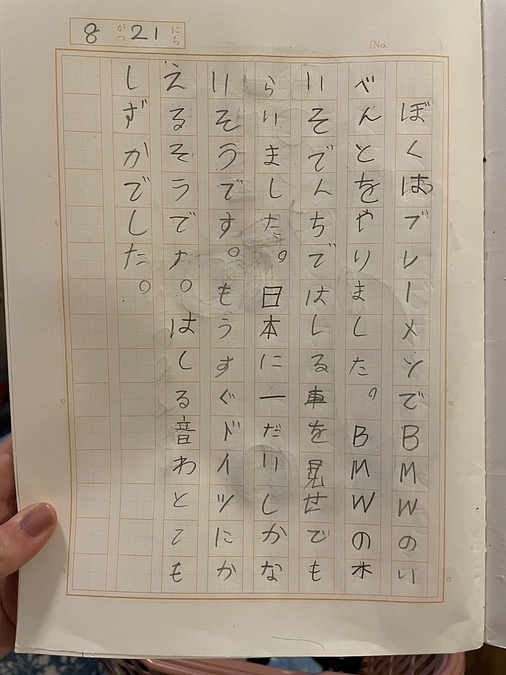 8がつ21にち
(No. )
ぼくはブレーメンでBMWのい
べんとをやりました。BMWの水
いそでんちではしる車を見せでも
らいました。日本に一だいしかな
いそうです。もうすぐドイツにか
えるそうです。はしる音わとても
しずかでした。